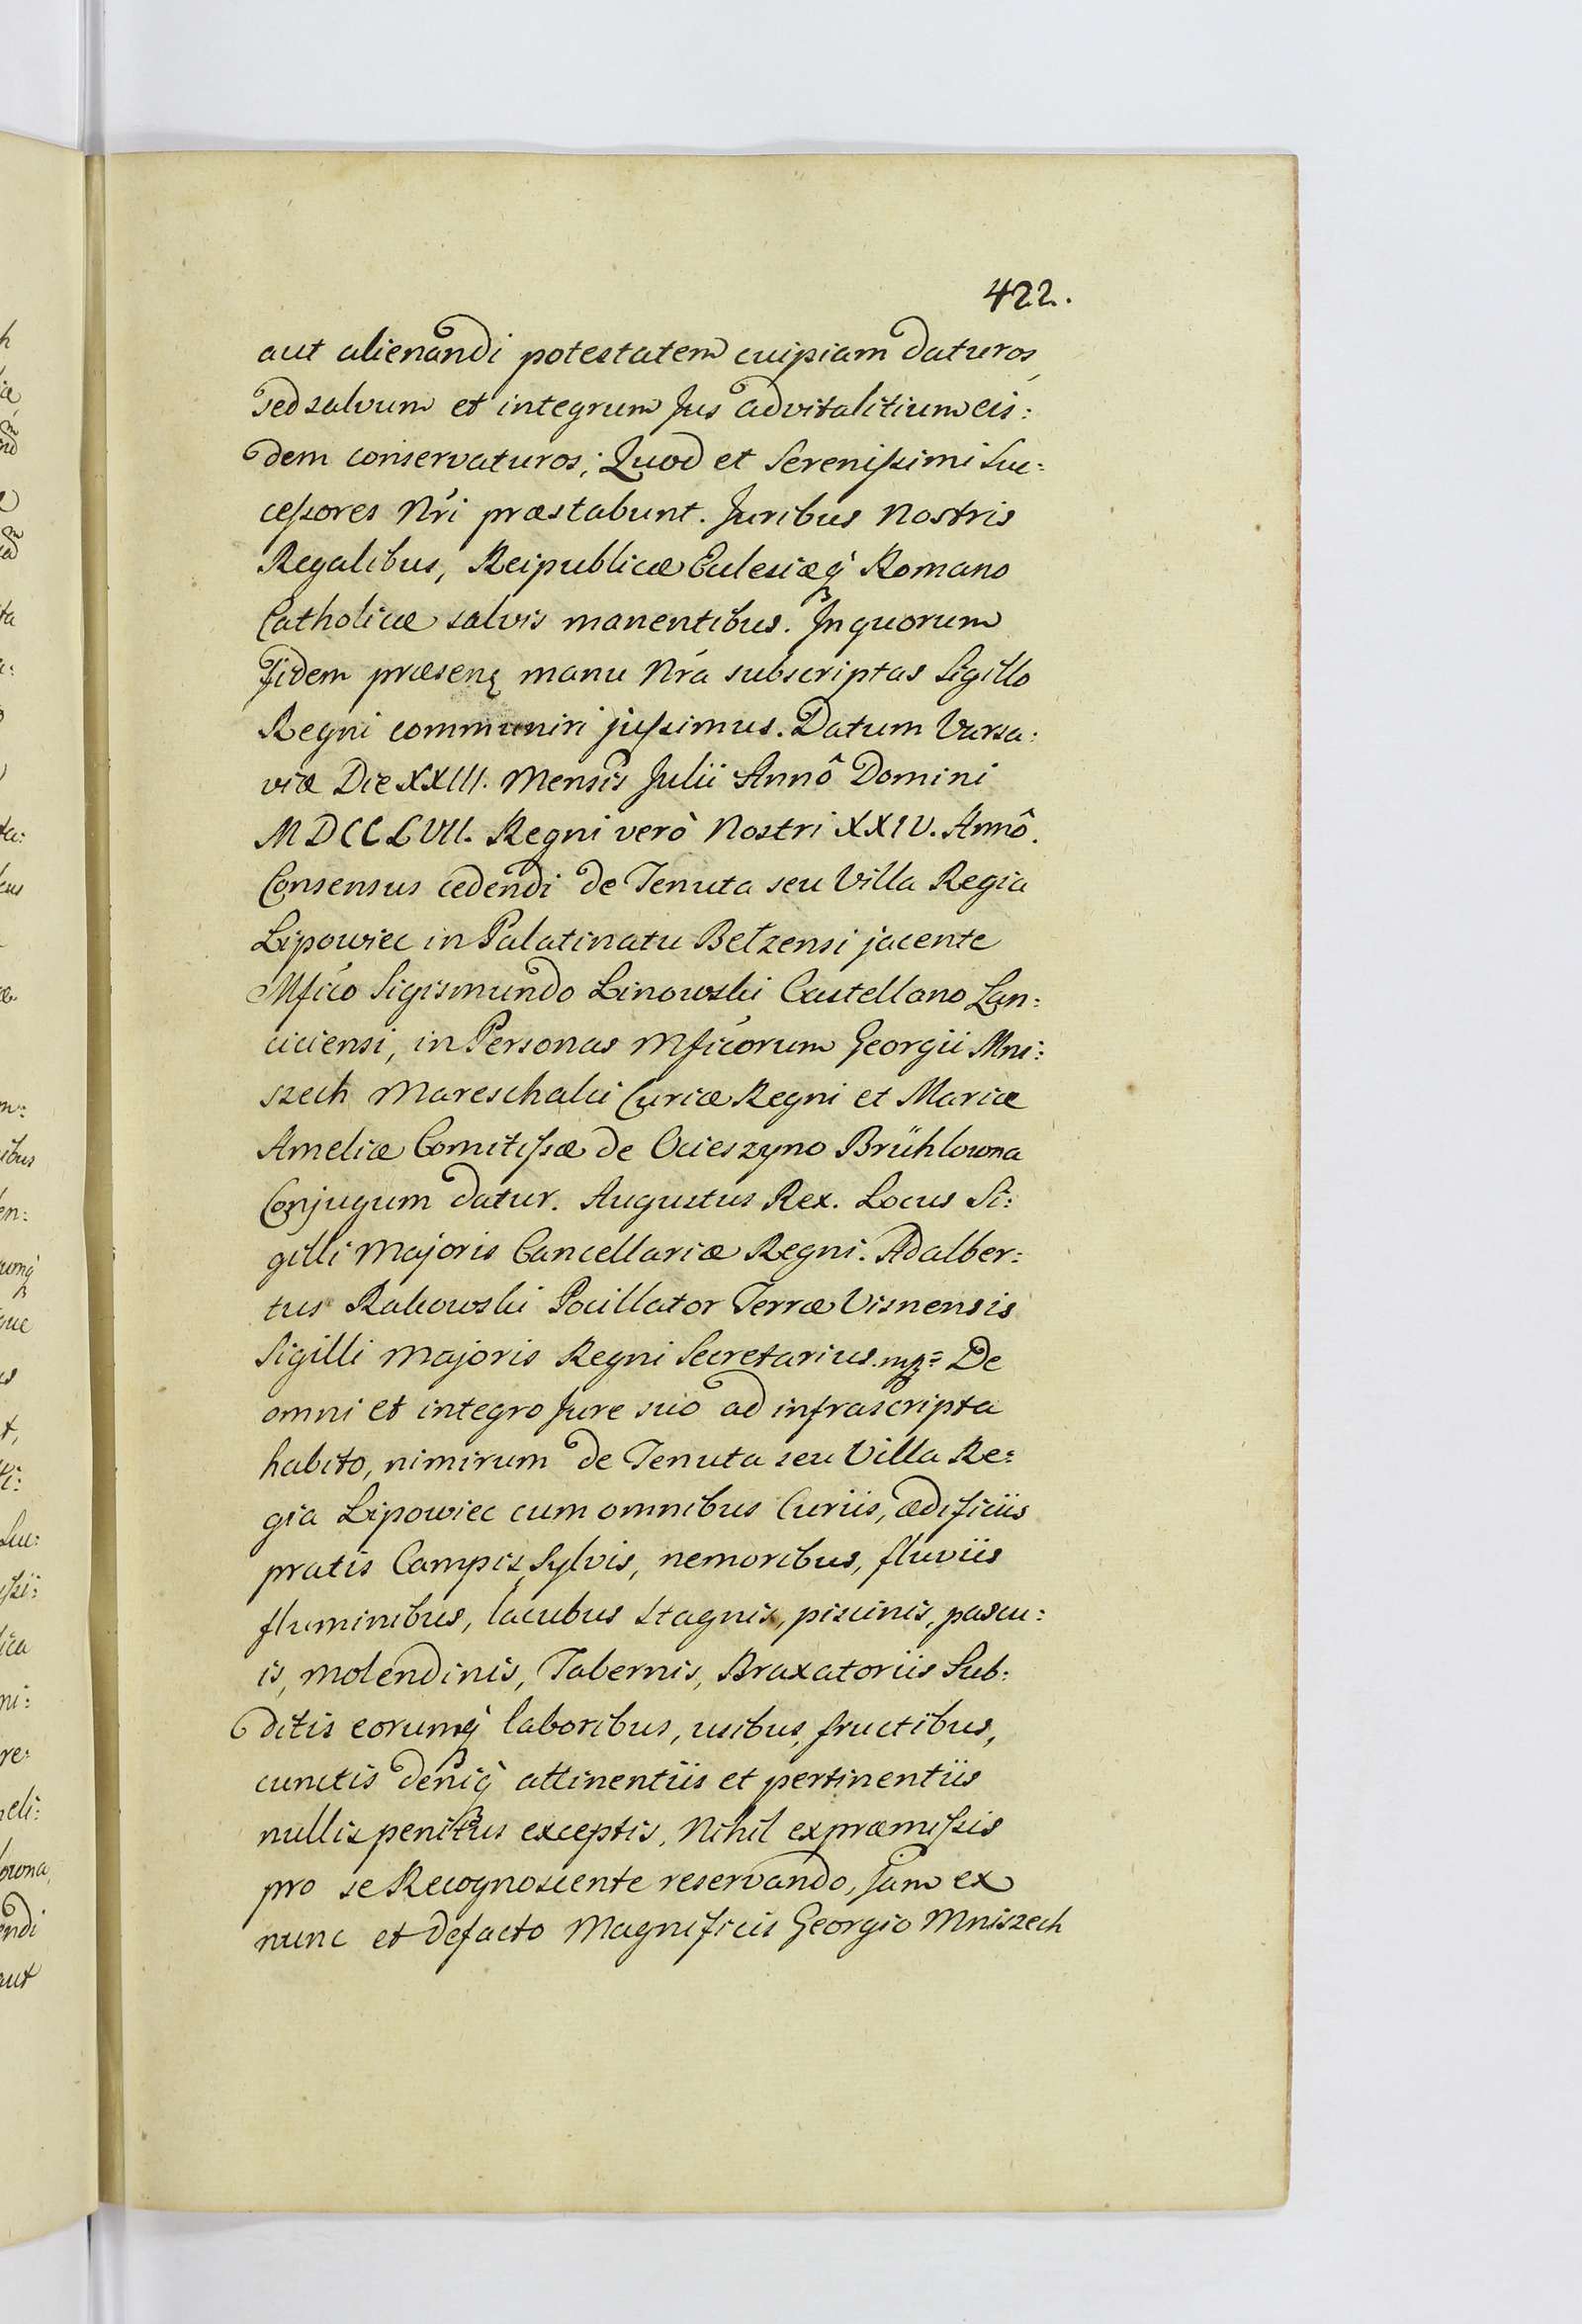 422.
aut alienandi potestatem cuipiam daturos,
sed salvum et integrum Jus advitalitium eis:
dem conservaturos; Quod et Serenissimi Suc:
cessores Nri præstabunt. Juribus Nostris
Regalibus, Reipublicæ Eclesiæq Romano
Catholicæ salvis manentibus. In quorum
Fidem præsenę manu Nrá subscriptas Sigillo
Regni communiri jussimus. Datum Varsa:
viæ Die XXIII. Mensis Julii Annô Domini
MDCCLVII. Regni verò Nostri XXIV. Annô.
Consensus cedendi de Tenuta seu Villa Regia
Lipowiec in Palatinatu Bełzensi jacente
Mfico Sigismundo Linowski Castellano Lan:
ciciensi, in Personas Mficorum Georgii Mni:
szech Mareschalci Curiæ Regni et Mariæ
Ameliæ Comitissæ de Ocieszyno Brühlowna
Conjugum datur. Augustus Rex. Locus Si:
gilli Majoris Cancellariæ Regni. Adalber:
tus Rakowski Pocillator Terræ Visnensis
Sigilli Majoris Regni Secretarius. mp= De
omni et integro Jure suo ad infrascripta
habito, nimirum de Tenuta seu Villa Re:
gia Lipowiec cum omnibus Curiis, ædificiis
pratis Campis, Sylvis, nemoribus, fluviis
fluminibus, lacubus Stagnis, piscinis, pascu:
is, molendinis, Tabernis, Braxatoriis Sub:
ditis eorumq laboribus, usibus, fructibus,
cunctis deniq attinentiis et pertinentiis
nullis penitus exceptis, Nihil ex præmissis
pro se Recognoscente reservando, Jam ex
nunc et defacto Magnificis Georgio Mniszech